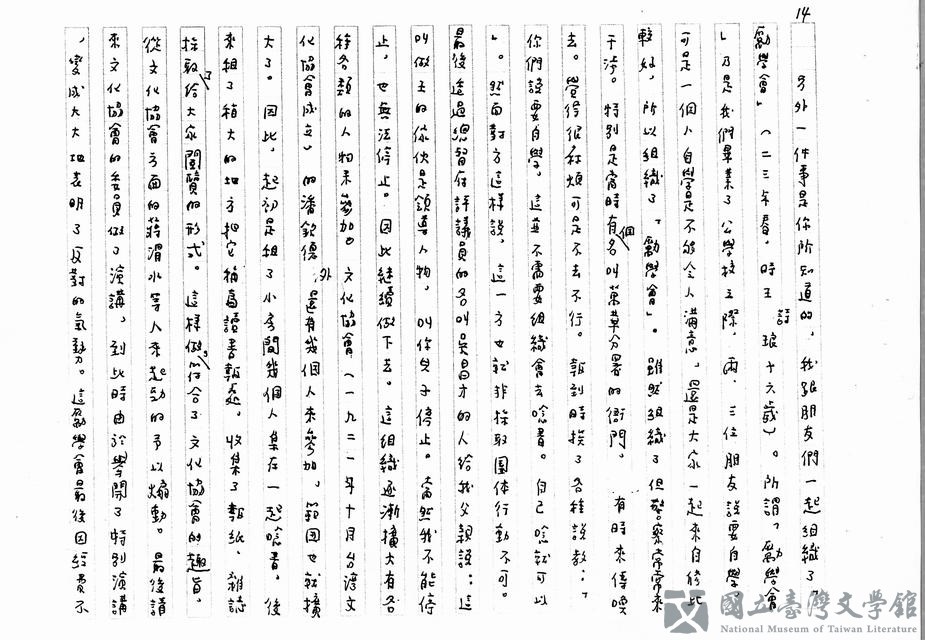 14
另外一件事是你所知道的，我跟朋友們一起組織了「
勵學會」（一二三年春，時王詩琅十六歲）。所謂「勵學會
」乃是我們畢業了公學校之際，兩、三位朋友說要自學。
可是一個人自學是不能令人滿意，還是大家一起來自修比
較好，所以組織了「勵學會」。雖然組織了但警察常常來
干涉。特別是當時有個名叫萬草分署的衙門，有時來傳喚
去。覺得很麻煩可是不去不行。報到時挨了各種說教：「
你們說要自學，這並不需要組織會去唸書。自己唸就可以
」。然而對方這樣說，這一方也就非採取團体行動不可。
最後透過總督府評議員的名叫吳昌才的人給我父親說：這
叫做王的傢伙是領導人物，叫你兒子停止。當然我不能停
止，也無法停止。因此繼續做下去。這組織逐漸擴大有各
種各類的人物來參加。文化協會（一九二一年十月台灣文
化協會成立）的潘欽德，外還有幾個人來參加，範囲也就擴
大了。因此，起初是租了小房間幾個人集在一起唸書。後
來租了稍大的地方把它稱為讀書報處。收集了報紙、雜誌
採取了給大家閱覽的形式。這樣做符合了文化協會的趣旨。
從文化協會方面的蔣渭水等人來起劲的予以煽動。最後請
來文化協會的委員做了演講，到此時由於學開了特別演講
，變成大大地表明了反對的氣勢。這勵學會最後因經費不
國立臺灣文學館
National Museum of Taiwan Literature